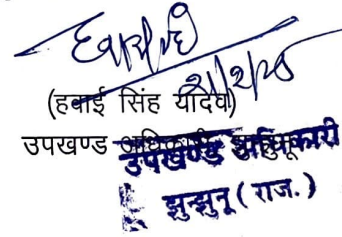 (हवाई सिंह यादव)
उपखण्ड अधिकारी, झुन्झुनू
उपखण्ड अधिकारी
झुन्झुनू ( राज. )